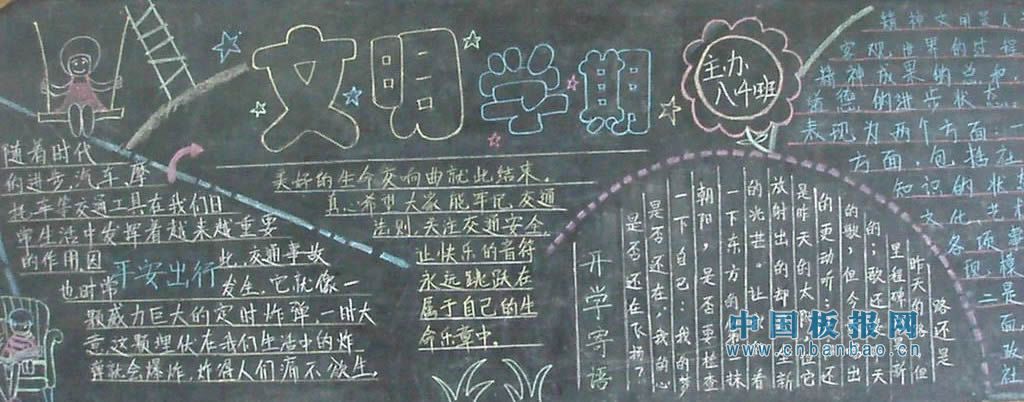 文明学期
主办
八4班
随着时代
的进步,汽车、摩
托车等交通工具在我们日
常生活中发挥着越来越重要
的作用,因
平安出行
此,交通事故
也时常
发生,它就像一
颗威力巨大的定时炸弹,一时大
意,这颗埋伏在我们生活中的炸
弹就会爆炸,炸得人们痛不欲生。
美好的生命交响曲就此结束。
真心希望大家能牢记交通
法则,关注交通安全,
让快乐的音符
永远跳跃在
属于自己的生
命乐章中。
开学寄语
路还是
昨天的 但
里程碑 新
的;歌还 天
的歌,但今 出
的更动听; 还
是昨天的太阳,但它
放射出的却 新
的光芒。让 看
一下东方的 抹
朝阳,是否要检查
一下自己:我的梦
是否还在,我的心
是否还在飞扬?
精神文明是人
客观世界的过程
精神成果的总和,
道德的进步状态
表现为两个方面:一
方面,包括社
知识的状
文化、艺术
各项事
现模
二是
面,
政
社
中国板报网
www.cnbanbao.cn